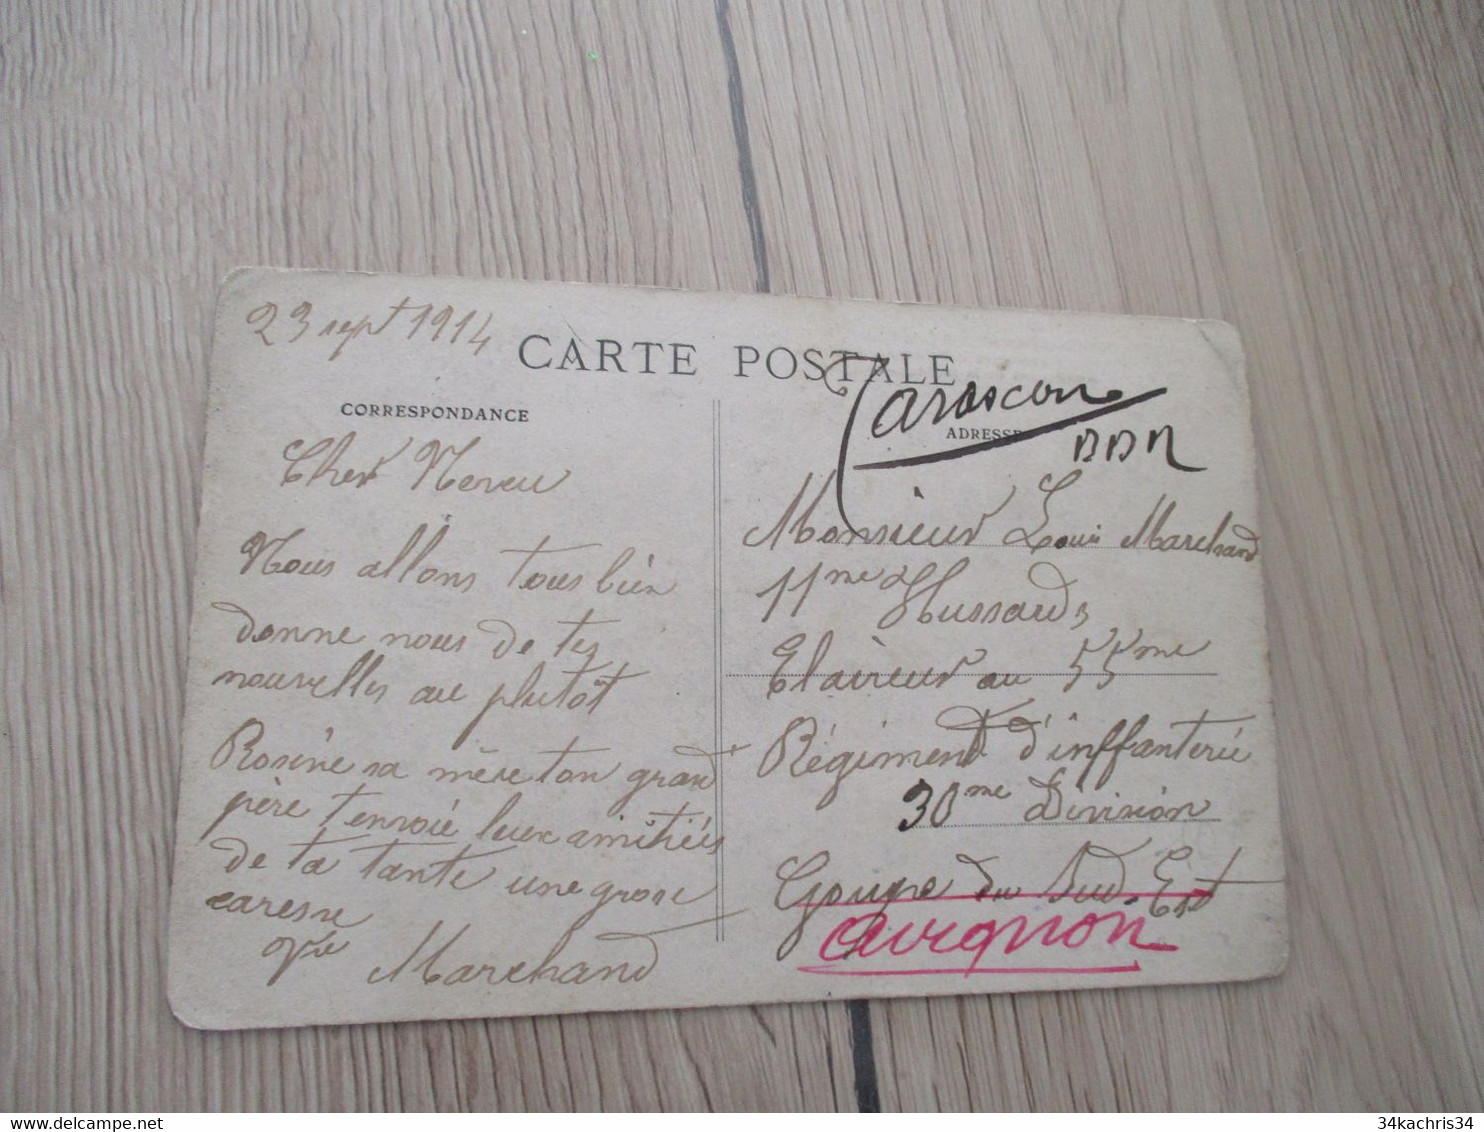 23 sept 1914
CARTE POSTALE
CORRESPONDANCE
Cher Neveu
Nous allons tous bien
donne nous de tes
nouvelles au plutôt
Rosine sa mère ton grand
père t'envoie leux amitiés
de ta tante une grosse
caresse
Marchand
Tarascon
ADRESSE
BDR
Monsieur Louis Marchand
11me Hussards
Elaireur au 55me
Régiment d'inffanterie
30me Division
Goupe du Sud-Est
Avignon
delcampe.net
34kachris34